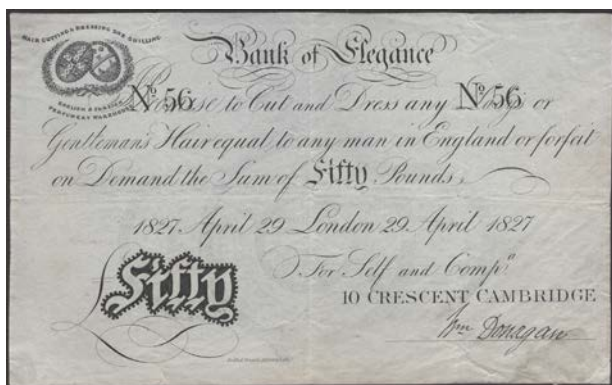 HAIR CUTTING & DRESSING ONE SHILLING
ENGLISH & FOREIGN
PERFUMERY WAREHOUSE
Bank of Elegance
No. 56 No. 56
Promise to Cut and Dress any Ladys or
Gentlemans Hair equal to any man in England or forfeit
on Demand the Sum of Fifty Pounds
1827 April 29 London 29 April 1827
Fifty
For Self and Compa.
10 CRESCENT CAMBRIDGE
Wm Donagan